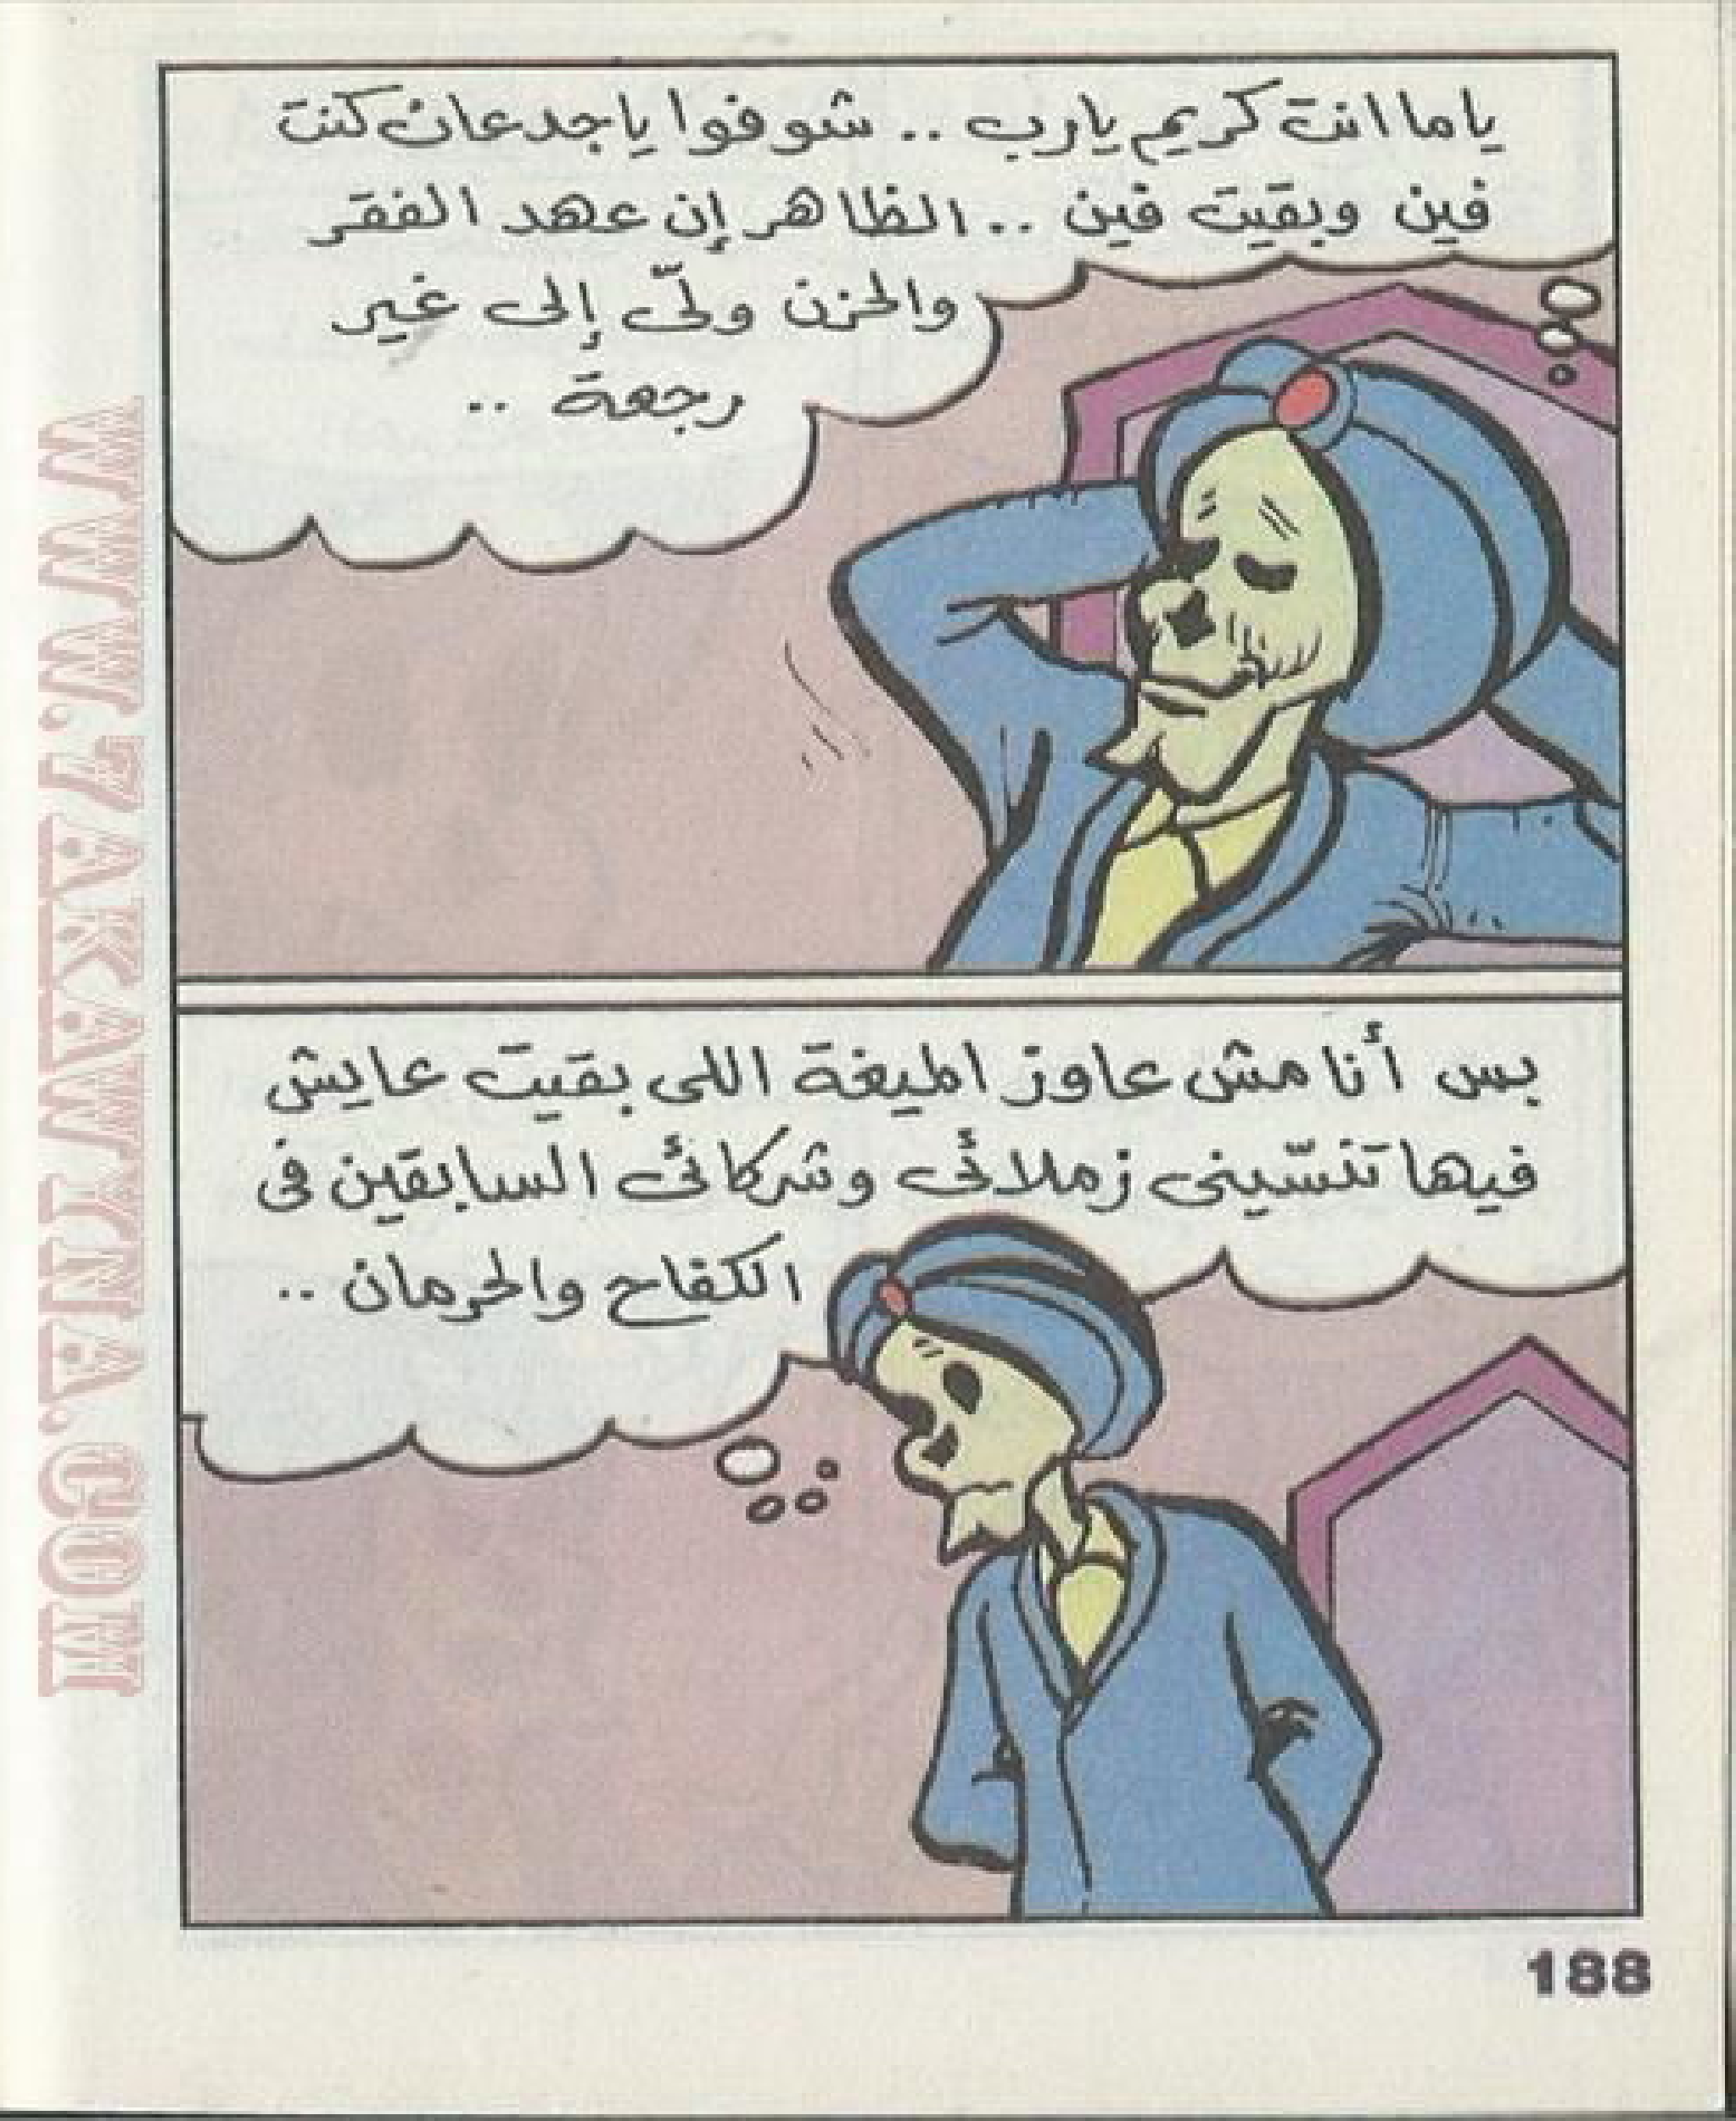 ياما انت كريم يارب .. شوفوا ياجدعان كنت
فين وبقيت فين .. الظاهر إن عهد الفقر
والحزن ولّى إلى غير
رجعة ..
بس أنا مش عاوز الميغة اللى بقيت عايش
فيها تنسّينى زملائى وشركائى السابقين فى
الكفاح والحرمان ..
188
WWW.7AKAWINA.COM